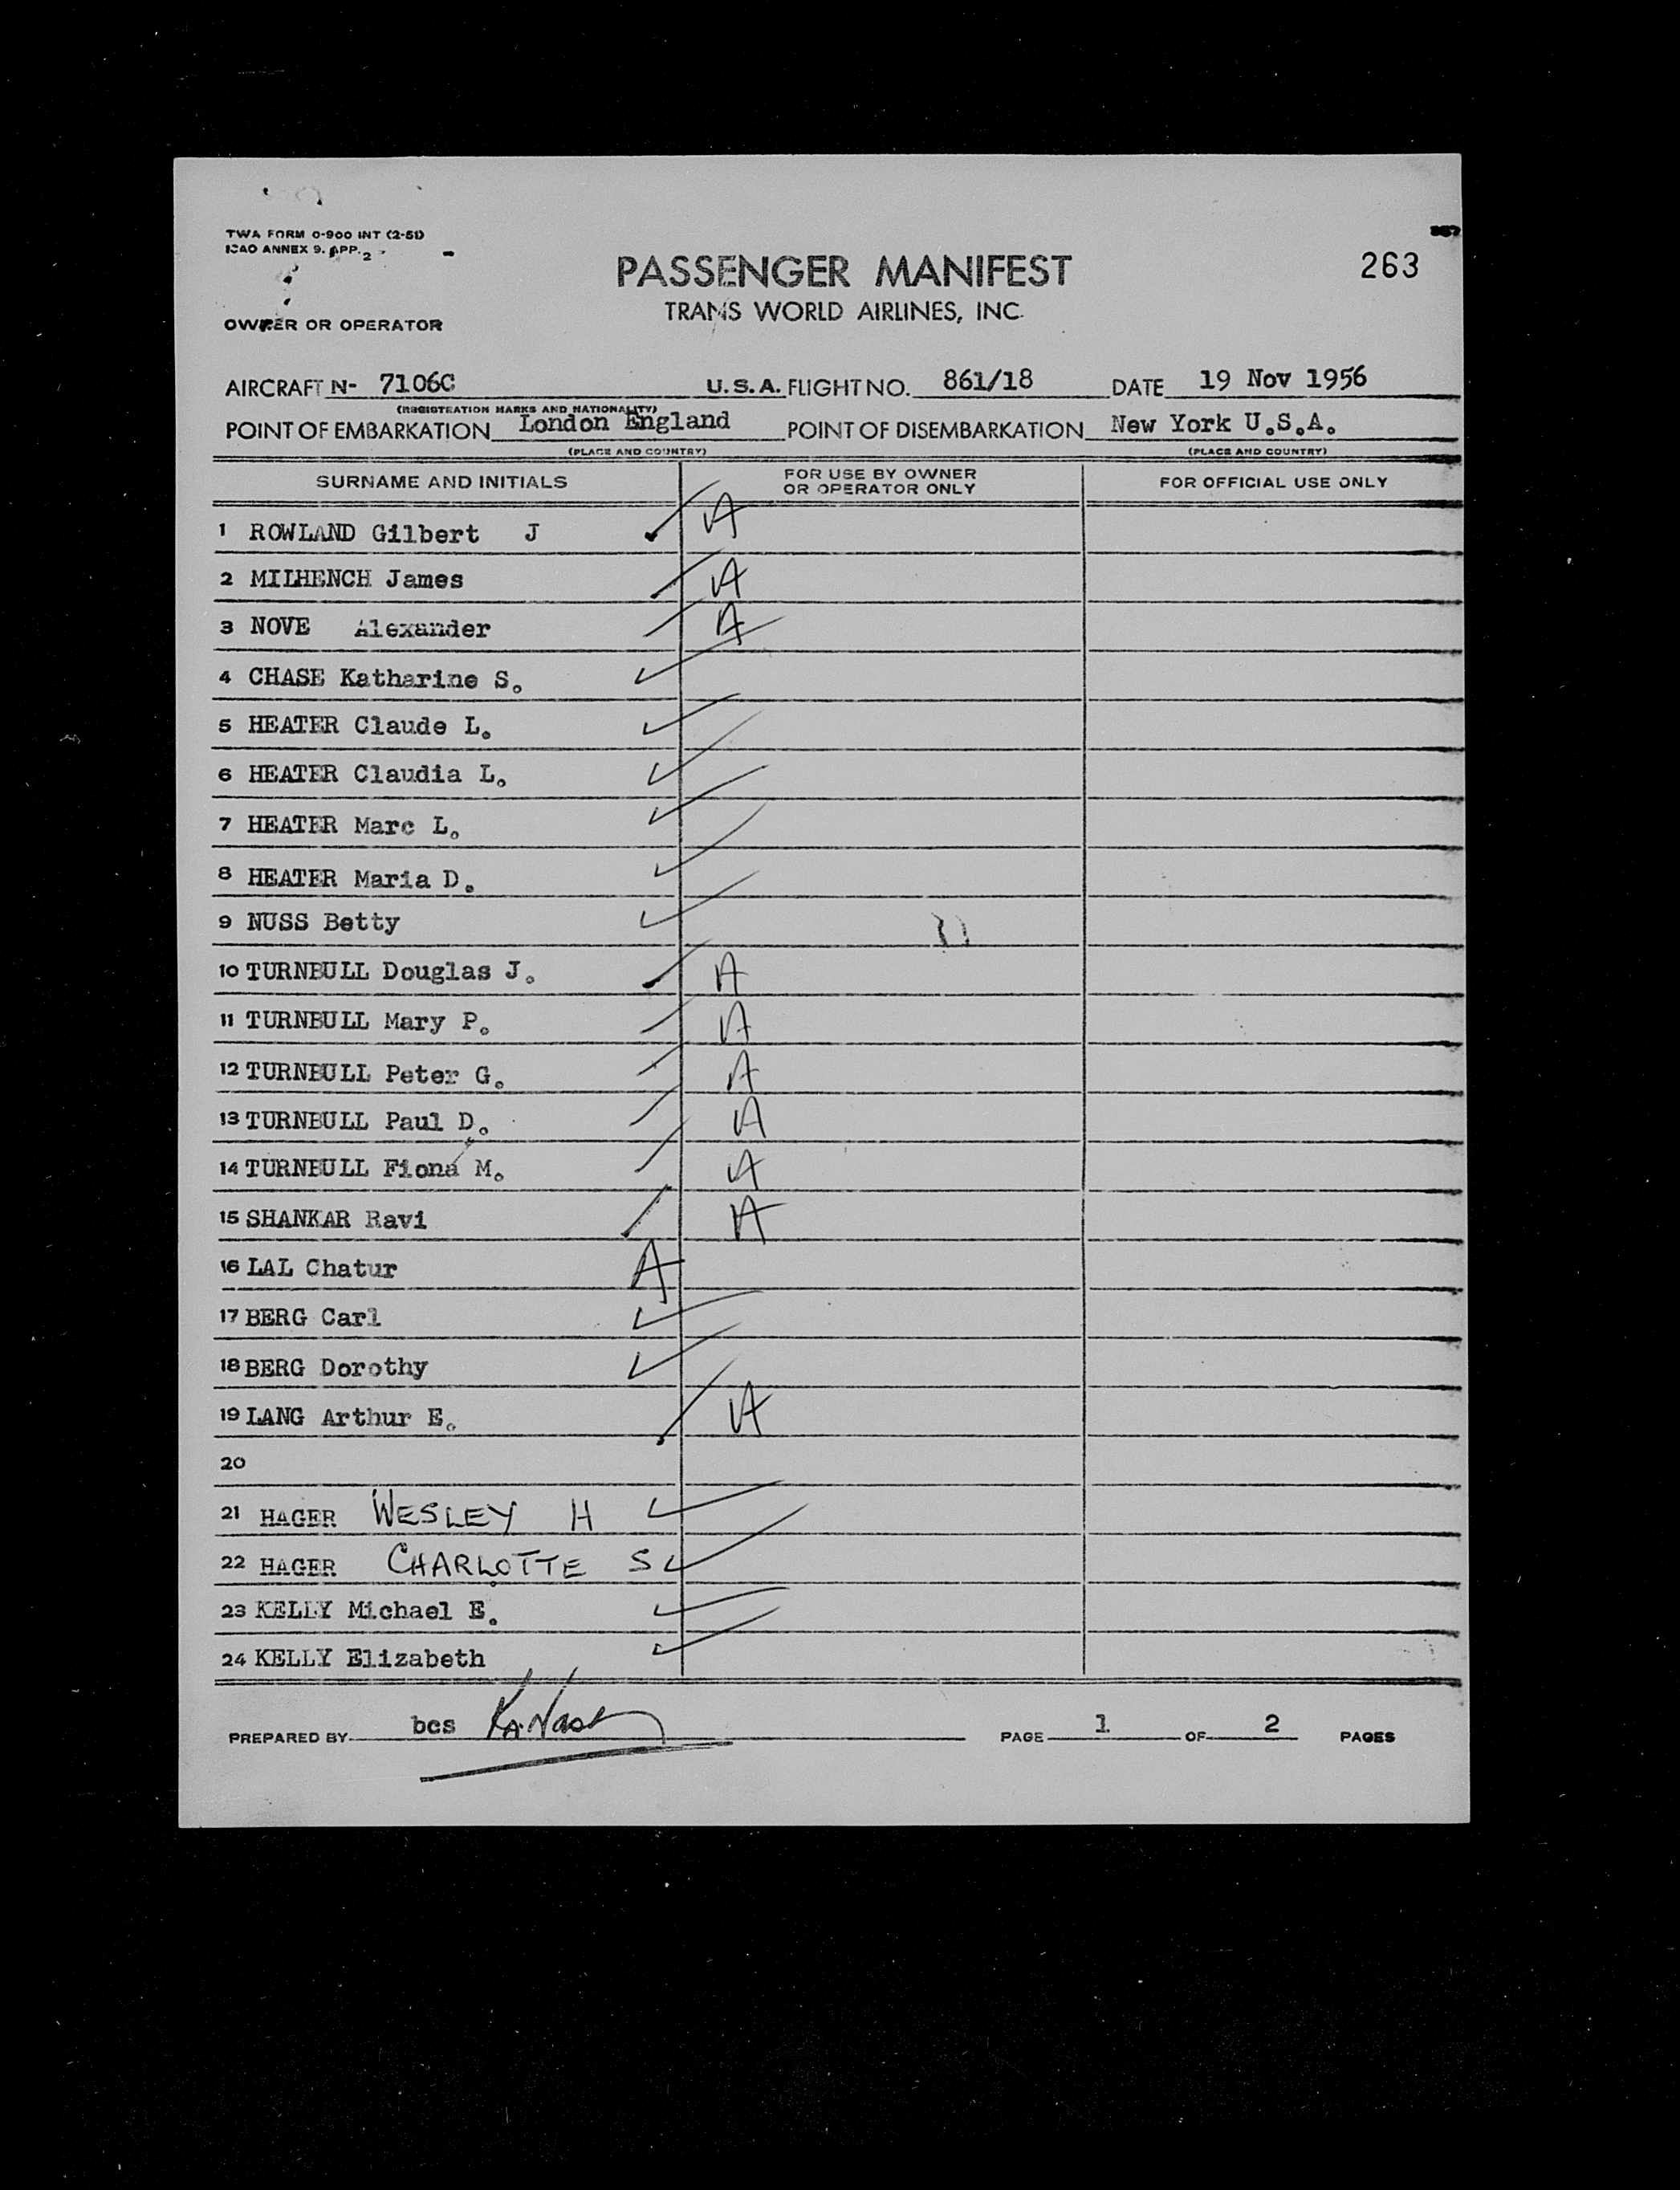 TWA FORM 0-900 INT (2-51)
ICAO ANNEX 9. APP. 2
263
PASSENGER MANIFEST
TRANS WORLD AIRLINES, INC.
OWNER OR OPERATOR
AIRCRAFT N- 7106C U.S.A. FLIGHT NO. 861/18 DATE 19 Nov 1956
(REGISTRATION MARKS AND NATIONALITY)
POINT OF EMBARKATION London England POINT OF DISEMBARKATION New York U.S.A.
(PLACE AND COUNTRY) (PLACE AND COUNTRY)
SURNAME AND INITIALS FOR USE BY OWNER OR OPERATOR ONLY FOR OFFICIAL USE ONLY
1 ROWLAND Gilbert J A
2 MILHENCH James A
3 NOVE Alexander A
4 CHASE Katharine S.
5 HEATER Claude L.
6 HEATER Claudia L.
7 HEATER Marc L.
8 HEATER Maria D.
9 NUSS Betty
10 TURNBULL Douglas J. A
11 TURNBULL Mary P. A
12 TURNBULL Peter G. A
13 TURNBULL Paul D. A
14 TURNBULL Fiona M. A
15 SHANKAR Ravi A
16 LAL Chatur A
17 BERG Carl
18 BERG Dorothy
19 LANG Arthur E. A
20
21 HAGER WESLEY H
22 HAGER CHARLOTTE S
23 KELLY Michael E.
24 KELLY Elizabeth
PREPARED BY bcs PAGE 1 OF 2 PAGES